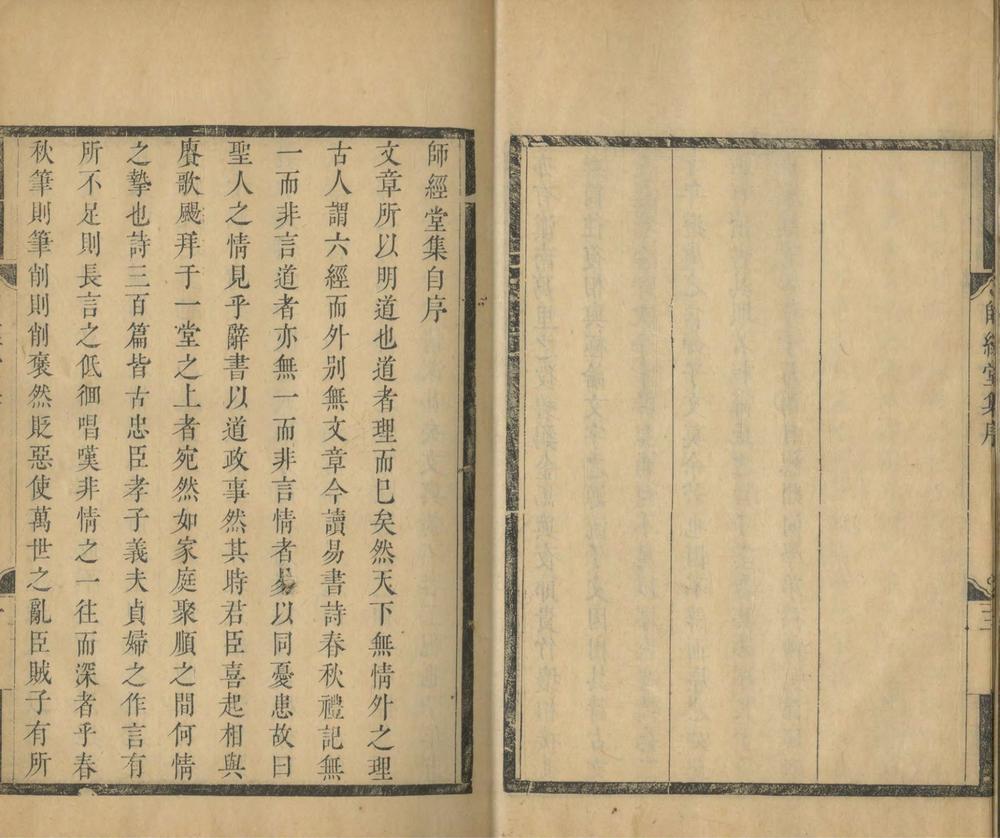 師經堂集序
三
師經堂集自序
文章所以明道也道者理而已矣然天下無情外之理
古人謂六經而外别無文章今讀易書詩春秋禮記無
一而非言道者亦無一而非言情者易以同憂患故曰
聖人之情見乎辭書以道政事然其時君臣喜起相與
賡歌颺拜于一堂之上者宛然如家庭聚順之間何情
之摯也詩三百篇皆古忠臣孝子義夫貞婦之作言有
所不足則長言之低徊唱嘆非情之一往而深者乎春
秋筆則筆削則削褒然貶惡使萬世之亂臣賊子有所